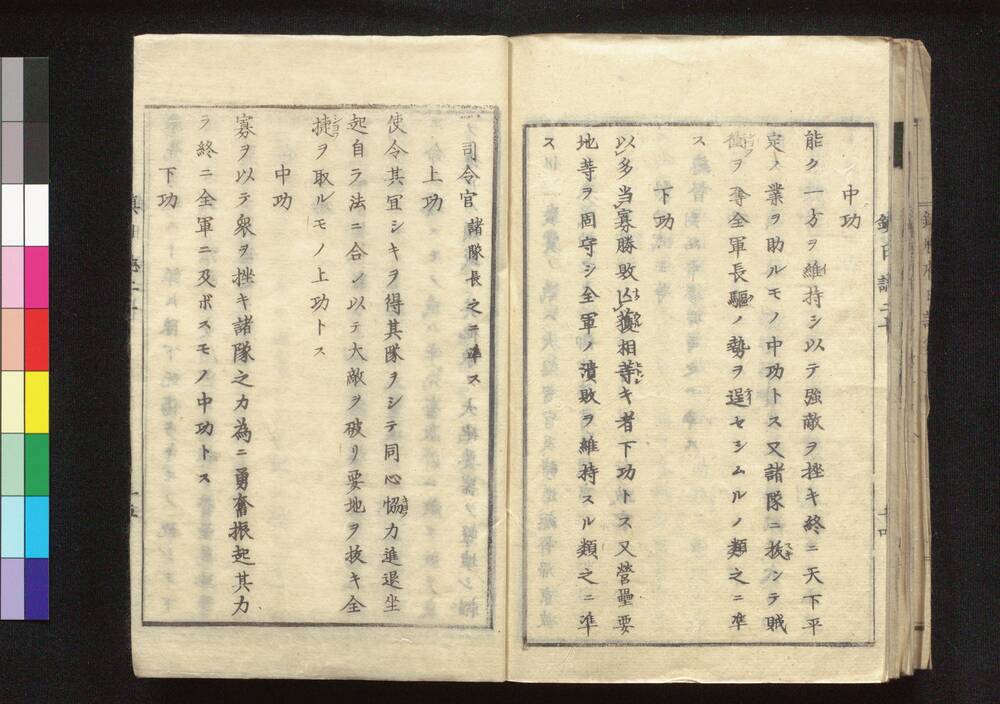 中功
能ク一方ヲ維持シ以テ強敵ヲ挫キ終ニ天下平
定ノ業ヲ助ルモノ中功トス又諸隊ニ抜ンテ賊
衝ヲ奪全軍長驅ノ勢ヲ逞セシムルノ類之ニ準
ス
下功
以多当寡勝敗凶獲相等キ者下功トス又營壘要
地等ヲ固守シ全軍ノ潰敗ヲ維持スル類之ニ準
ス
司令官 諸隊長之ニ準ス
上功
使令其宜シキヲ得其隊ヲシテ同心協力進退坐
起自ラ法ニ合ン以テ大敵ヲ破リ要地ヲ抜キ全
捷ヲ取ルモノ上功トス
中功
寡ヲ以テ衆ヲ挫キ諸隊之カ為ニ勇奮振起其力
ラ終ニ全軍ニ及ボスモノ中功トス
下功